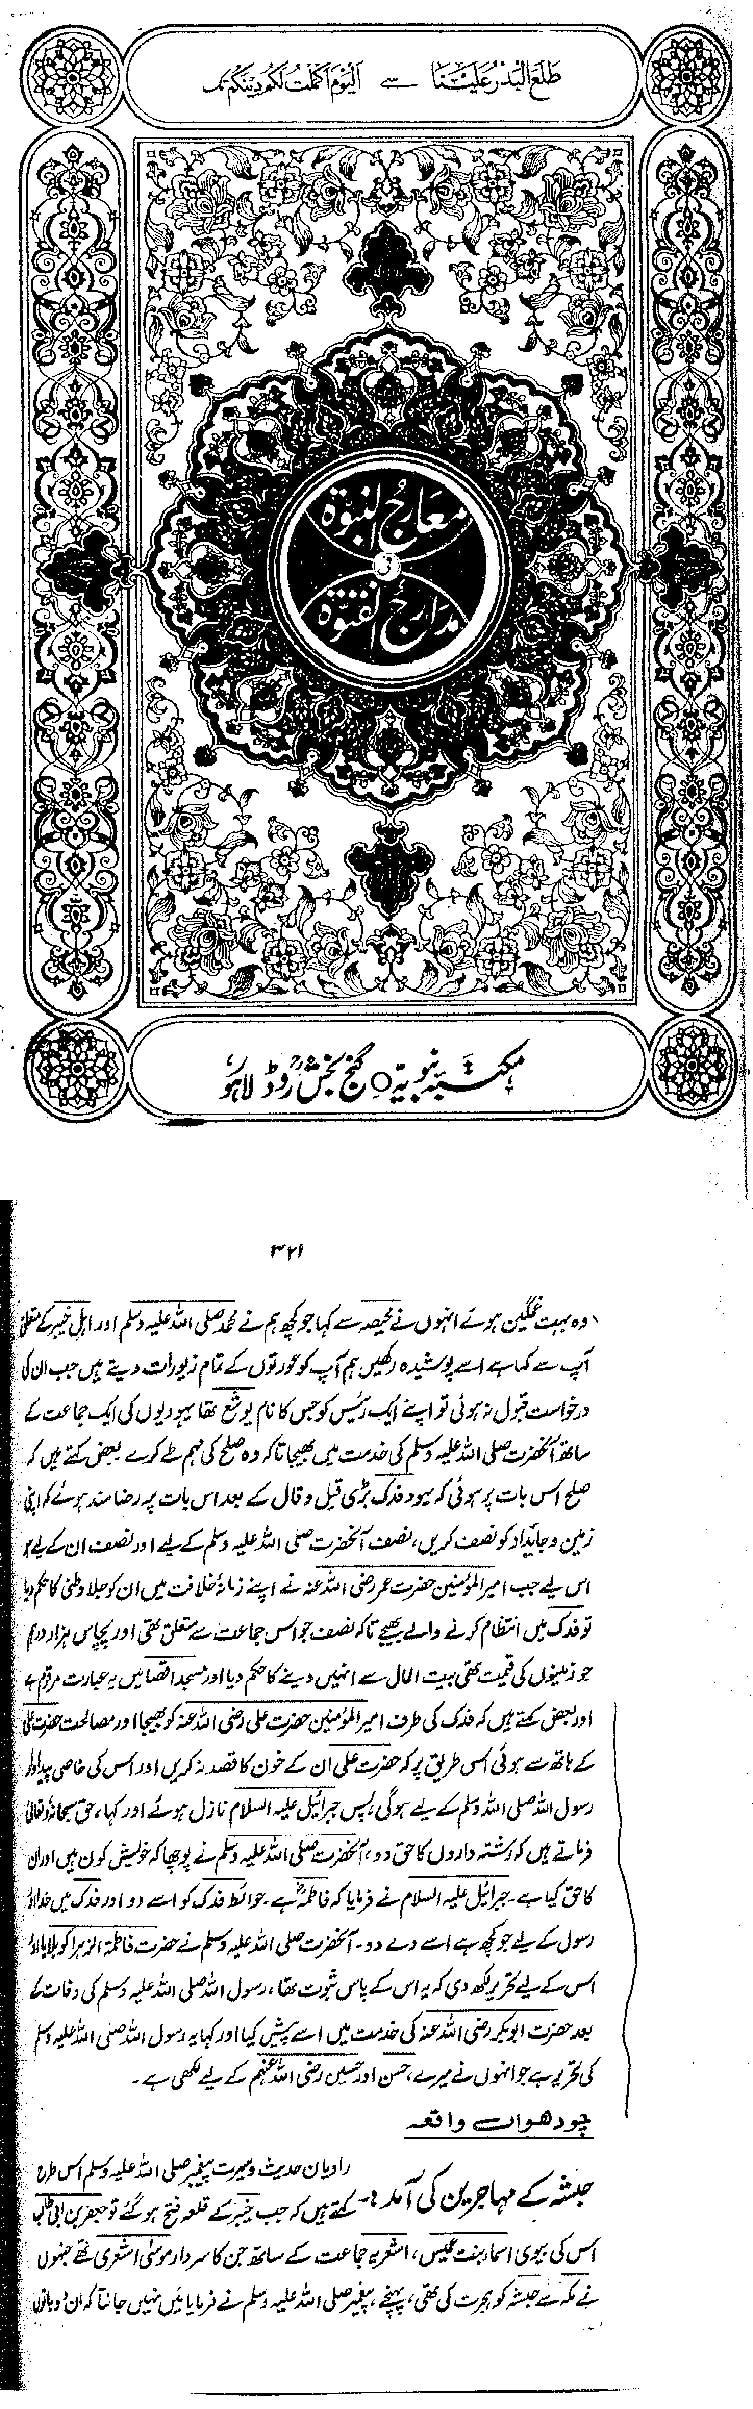 طَلَعَ الْبَدْرُ عَلَيْنَا سے اَلْيَوْمَ اَكْمَلْتُ لَكُمْ دِيْنَكُمْ تک
معارج النبوة
و
مدارج الفتوة
مکتبہ نبویہ گنج بخش روڈ لاہور
۳۲۱
وہ بہت غمگین ہوئے انہوں نے محیصہ سے کہا جو کچھ ہم نے محمد صلی اللہ علیہ وسلم اور اہل خیبر کے متعلق
آپ سے کہا ہے اسے پوشیدہ رکھیں ہم آپ کو عورتوں کے تمام زیورات دیتے ہیں جب ان کی
درخواست قبول نہ ہوئی تو اپنے ایک رئیس کو جس کا نام یوشع تھا یہودیوں کی ایک جماعت کے
ساتھ آنحضرت صلی اللہ علیہ وسلم کی خدمت میں بھیجا تاکہ وہ صلح کی مہم طے کرے بعض کہتے ہیں کہ
صلح اس بات پر ہوئی کہ یہود فدک بڑی قیل و قال کے بعد اس بات پر رضا مند ہوئے کہ اپنی
زمین و جائداد کو نصف کریں، نصف آنحضرت صلی اللہ علیہ وسلم کے لیے اور نصف ان کے لیے ہو
اس لیے جب امیر المؤمنین حضرت عمر رضی اللہ عنہ نے اپنے زمانۂ خلافت میں ان کو جلا وطنی کا حکم دیا
تو فدک میں انتظام کرنے والے بھیجے تاکہ نصف جو اس جماعت سے متعلق تھی اور پچاس ہزار درہم
جو زمینوں کی قیمت تھی بیت المال سے انہیں دینے کا حکم دیا اور مسجد اقصا میں یہ عبارت مرقوم ہے
اور بعض کہتے ہیں کہ فدک کی طرف امیر المؤمنین حضرت علی رضی اللہ عنہ کو بھیجا اور مصالحت حضرت علی
کے ہاتھ سے ہوئی اس طریق پر کہ حضرت علی ان کے خون کا قصد نہ کریں اور اس کی خاص پیداوار
رسول اللہ صلی اللہ وسلم کے لیے ہوگی، پس جبرائیل علیہ السلام نازل ہوئے اور کہا، حق سبحانہ وتعالیٰ
فرماتے ہیں کہ رشتہ داروں کا حق دو، آنحضرت صلی اللہ علیہ وسلم نے پوچھا کہ خویش کون ہیں اور ان
کا حق کیا ہے۔ جبرائیل علیہ السلام نے فرمایا کہ فاطمہؓ ہے۔ حوائط فدک کو اسے دو اور فدک میں خدا اور
رسول کے لیے جو کچھ ہے اسے دے دو۔ آنحضرت صلی اللہ علیہ وسلم نے حضرت فاطمۃ الزہرا کو بلایا اور
اس کے لیے تحریر لکھ دی کہ یہ اس کے پاس ثبوت تھا، رسول اللہ صلی اللہ علیہ وسلم کی وفات کے
بعد حضرت ابوبکر رضی اللہ عنہ کی خدمت میں اسے پیش کیا اور کہا یہ رسول اللہ صلی اللہ علیہ وسلم
کی تحریر ہے جو انہوں نے میرے، حسن اور حسین رضی اللہ عنہم کے لیے لکھی ہے۔
چودھواں واقعہ
حبشہ کے مہاجرین کی آمد :-
راویان حدیث و سیرت پیغمبر صلی اللہ علیہ وسلم اس طرح
کہتے ہیں کہ جب خیبر کے قلعہ فتح ہو گئے تو جعفر بن ابی طالب
اس کی بیوی اسماء بنت عمیس، اشعریہ جماعت کے ساتھ جن کا سردار موسیٰ اشعری تھے جنہوں
نے مکہ سے حبشہ کو ہجرت کی تھی، پہنچے، پیغمبر صلی اللہ علیہ وسلم نے فرمایا میں نہیں جانتا کہ ان دو باتوں